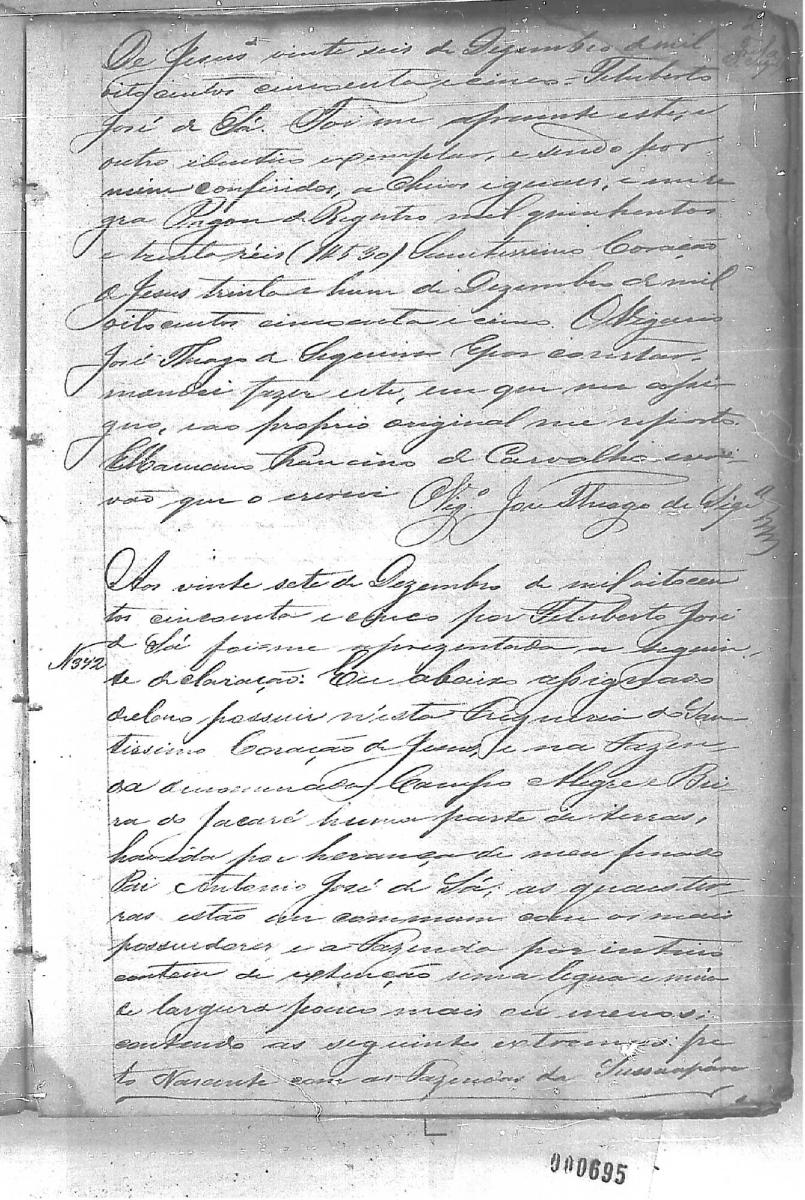 De Jesus vinte seis de Dezembro de mil
oito centos cincoenta e cinco = Filuberto
José de Sá. Foi me apresente este, e
outro identico exemplar, e sendo por
mim conferidos, achei os iguaes, e inte
gra Pagou de Registro mil quinhentos
e trinta réis (1$530) Santissimo Coração
de Jesus trinta e hum de Dezembro de mil
oito centos cincoenta e cinco. O Vigario
José Thiago de Siqueira E por constar,
mandei fazer este, em que me assi
gno, e ao proprio original me reporto.
Francino de Carvalho escri-
vão que o escrevi O Vigº. José Thiago de Siqrª
Aos vinte sete de Dezembro de mil oito cen
tos cincoenta e cinco por Filuberto José
de Sá foi me aprezentada a seguin-
Nº 342
te declaração: Eu abaixo assignado
declaro possuir n'esta Freguezia do San
tissimo Coração de Jesus, e na Fazen
da denominada Campo Alegre e Bei
ra do Jacaré huma parte de terras,
havida por herança de meu finado
Pai Antonio José de Sá; as quaes ter
ras estão em commum com os mais
possuidores e a Fazenda por inteiro
contem de extenção uma legua e meia
e largura pouco mais ou menos;
contendo as seguintes extremas: pe
lo Nascente com as Fazendas da Sussuapára
000695